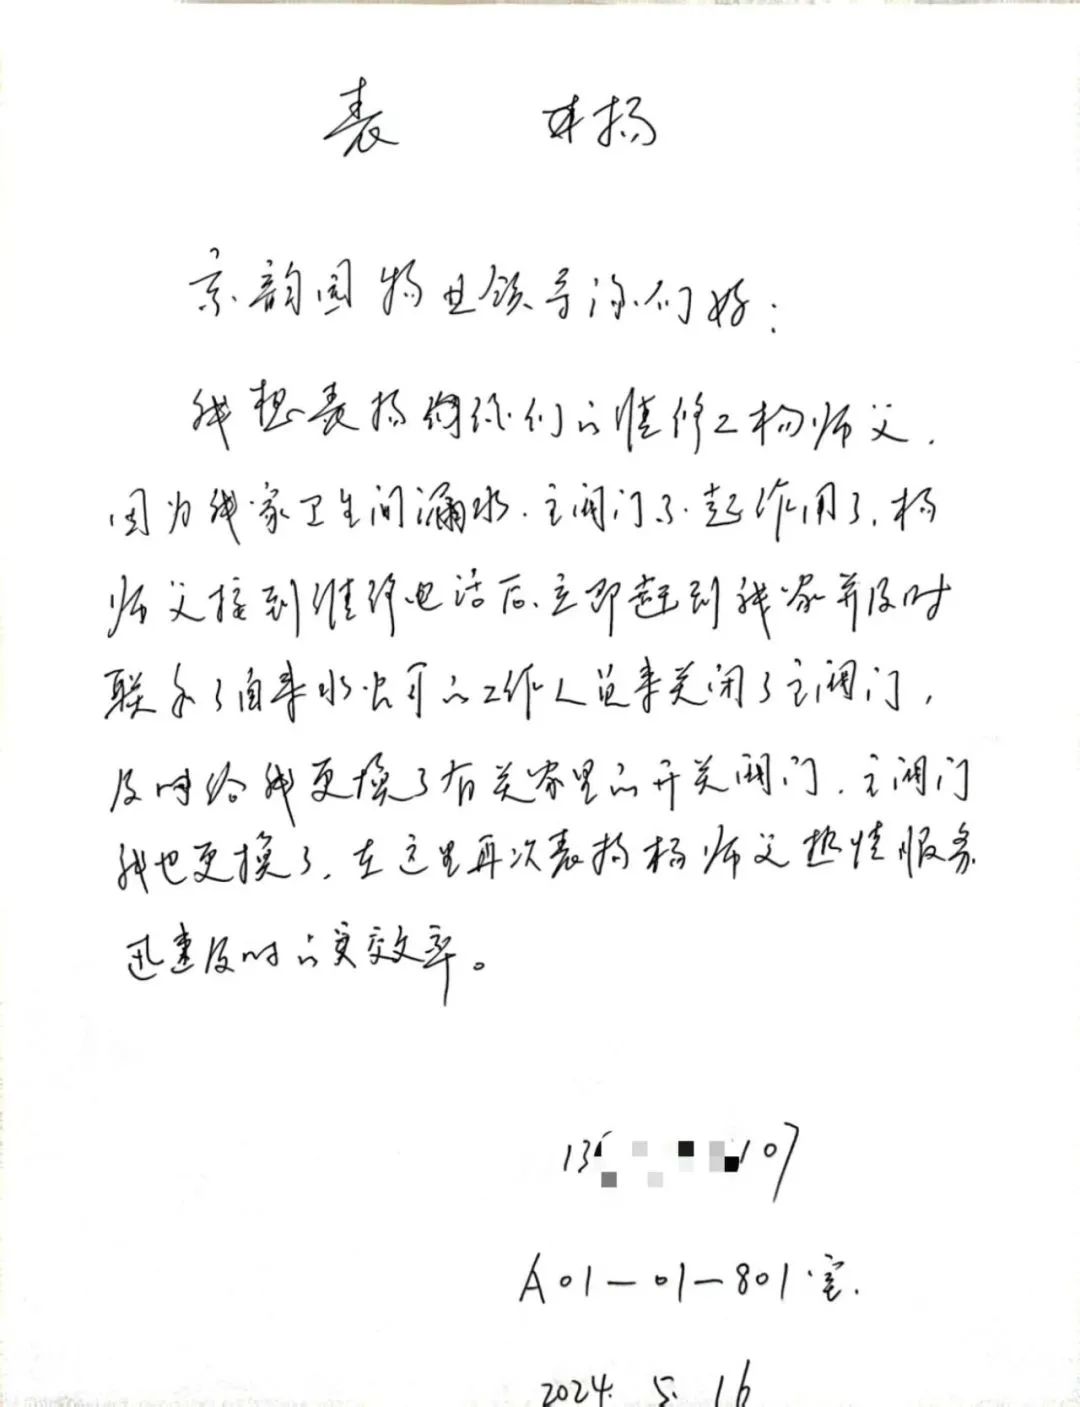 表 扬
京韵园物业领导你们好：
我想表扬你们的维修工杨师父.
因为我家卫生间漏水.主阀门不起作用了.杨
师父接到维修电话后、立即赶到我家并及时
联系了自来水公司的工作人员来关闭了主阀门,
及时给我更换了有关家里的开关阀门.主阀门
我也更换了.在这里再次表扬杨师父热情服务
迅速及时的真效率。
13 107
A01-01-801室.
2024. 5. 16